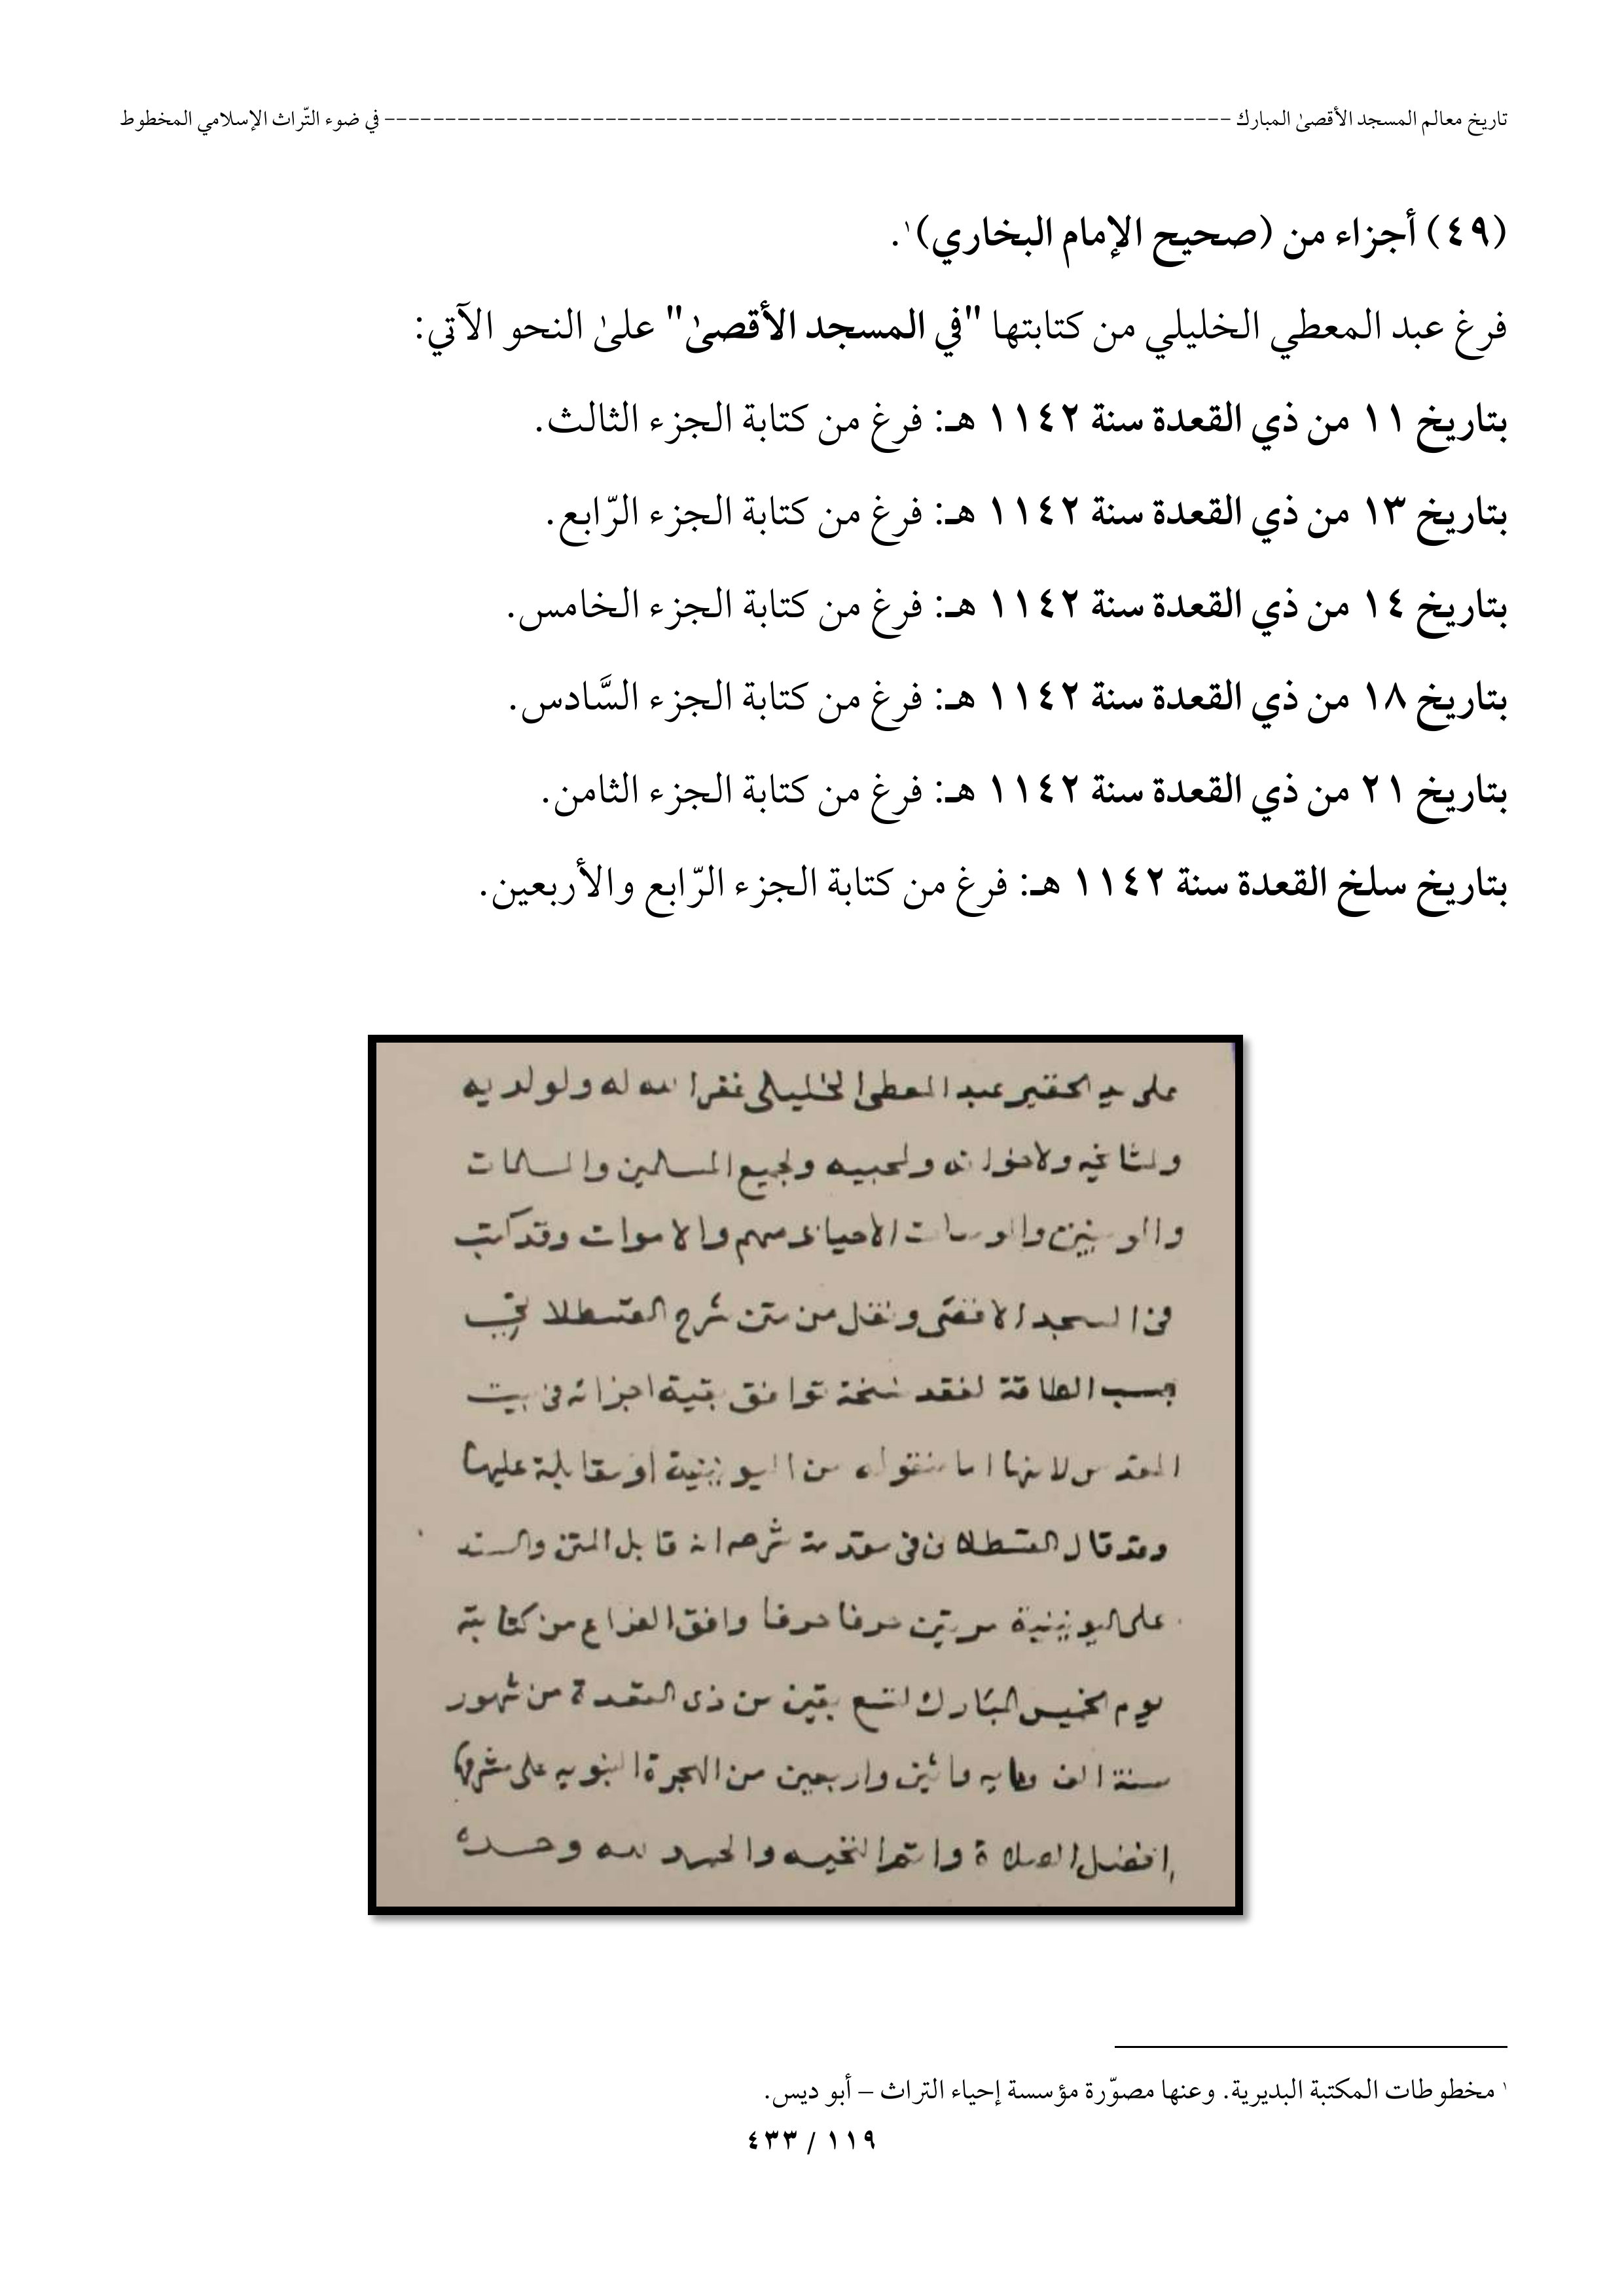 تاريخ معالم المسجد الأقصىٰ المبارك ---------------------------------------------------------------------- في ضوء التّراث الإسلامي المخطوط
(٤٩) أجزاء من (صحيح الإمام البخاري)١.
فرغ عبد المعطي الخليلي من كتابتها "في المسجد الأقصىٰ" علىٰ النحو الآتي:
بتاريخ ١١ من ذي القعدة سنة ١١٤٢ هـ: فرغ من كتابة الجزء الثالث.
بتاريخ ١٣ من ذي القعدة سنة ١١٤٢ هـ: فرغ من كتابة الجزء الرّابع.
بتاريخ ١٤ من ذي القعدة سنة ١١٤٢ هـ: فرغ من كتابة الجزء الخامس.
بتاريخ ١٨ من ذي القعدة سنة ١١٤٢ هـ: فرغ من كتابة الجزء السَّادس.
بتاريخ ٢١ من ذي القعدة سنة ١١٤٢ هـ: فرغ من كتابة الجزء الثامن.
بتاريخ سلخ القعدة سنة ١١٤٢ هـ: فرغ من كتابة الجزء الرّابع والأربعين.
على يد الحقير عبد المعطى الخليلى غفر الله له ولوالديه
ولمشايخه ولاخوانه ولمحبيه ولجميع المسلمين والمسلمات
والمومنين والمومنات الاحياء منهم والاموات وقد كتب
فى المسجد الاقصى ونقل من متن شرح القسطلانى
بحسب الطاقة لفقد نسخة توافق بقية اجزائه فى بيت
المقدس لانها اما منقوله من اليونينية او مقابلة عليها
وقد قال القسطلانى فى مقدمة شرحه انه قابل المتن والسند
على اليونينية مرتين حرفا حرفا وافق الفراغ من كتابته
يوم الخميس المبارك لتسع بقين من ذى القعدة من شهور
سنة الف ومايه واثنين واربعين من الهجرة النبويه على مشرفها
افضل الصلاة واتم التحيه والحمد لله وحده
١ مخطوطات المكتبة البديرية. وعنها مصوّرة مؤسسة إحياء التراث – أبو ديس.
١١٩ / ٤٣٣